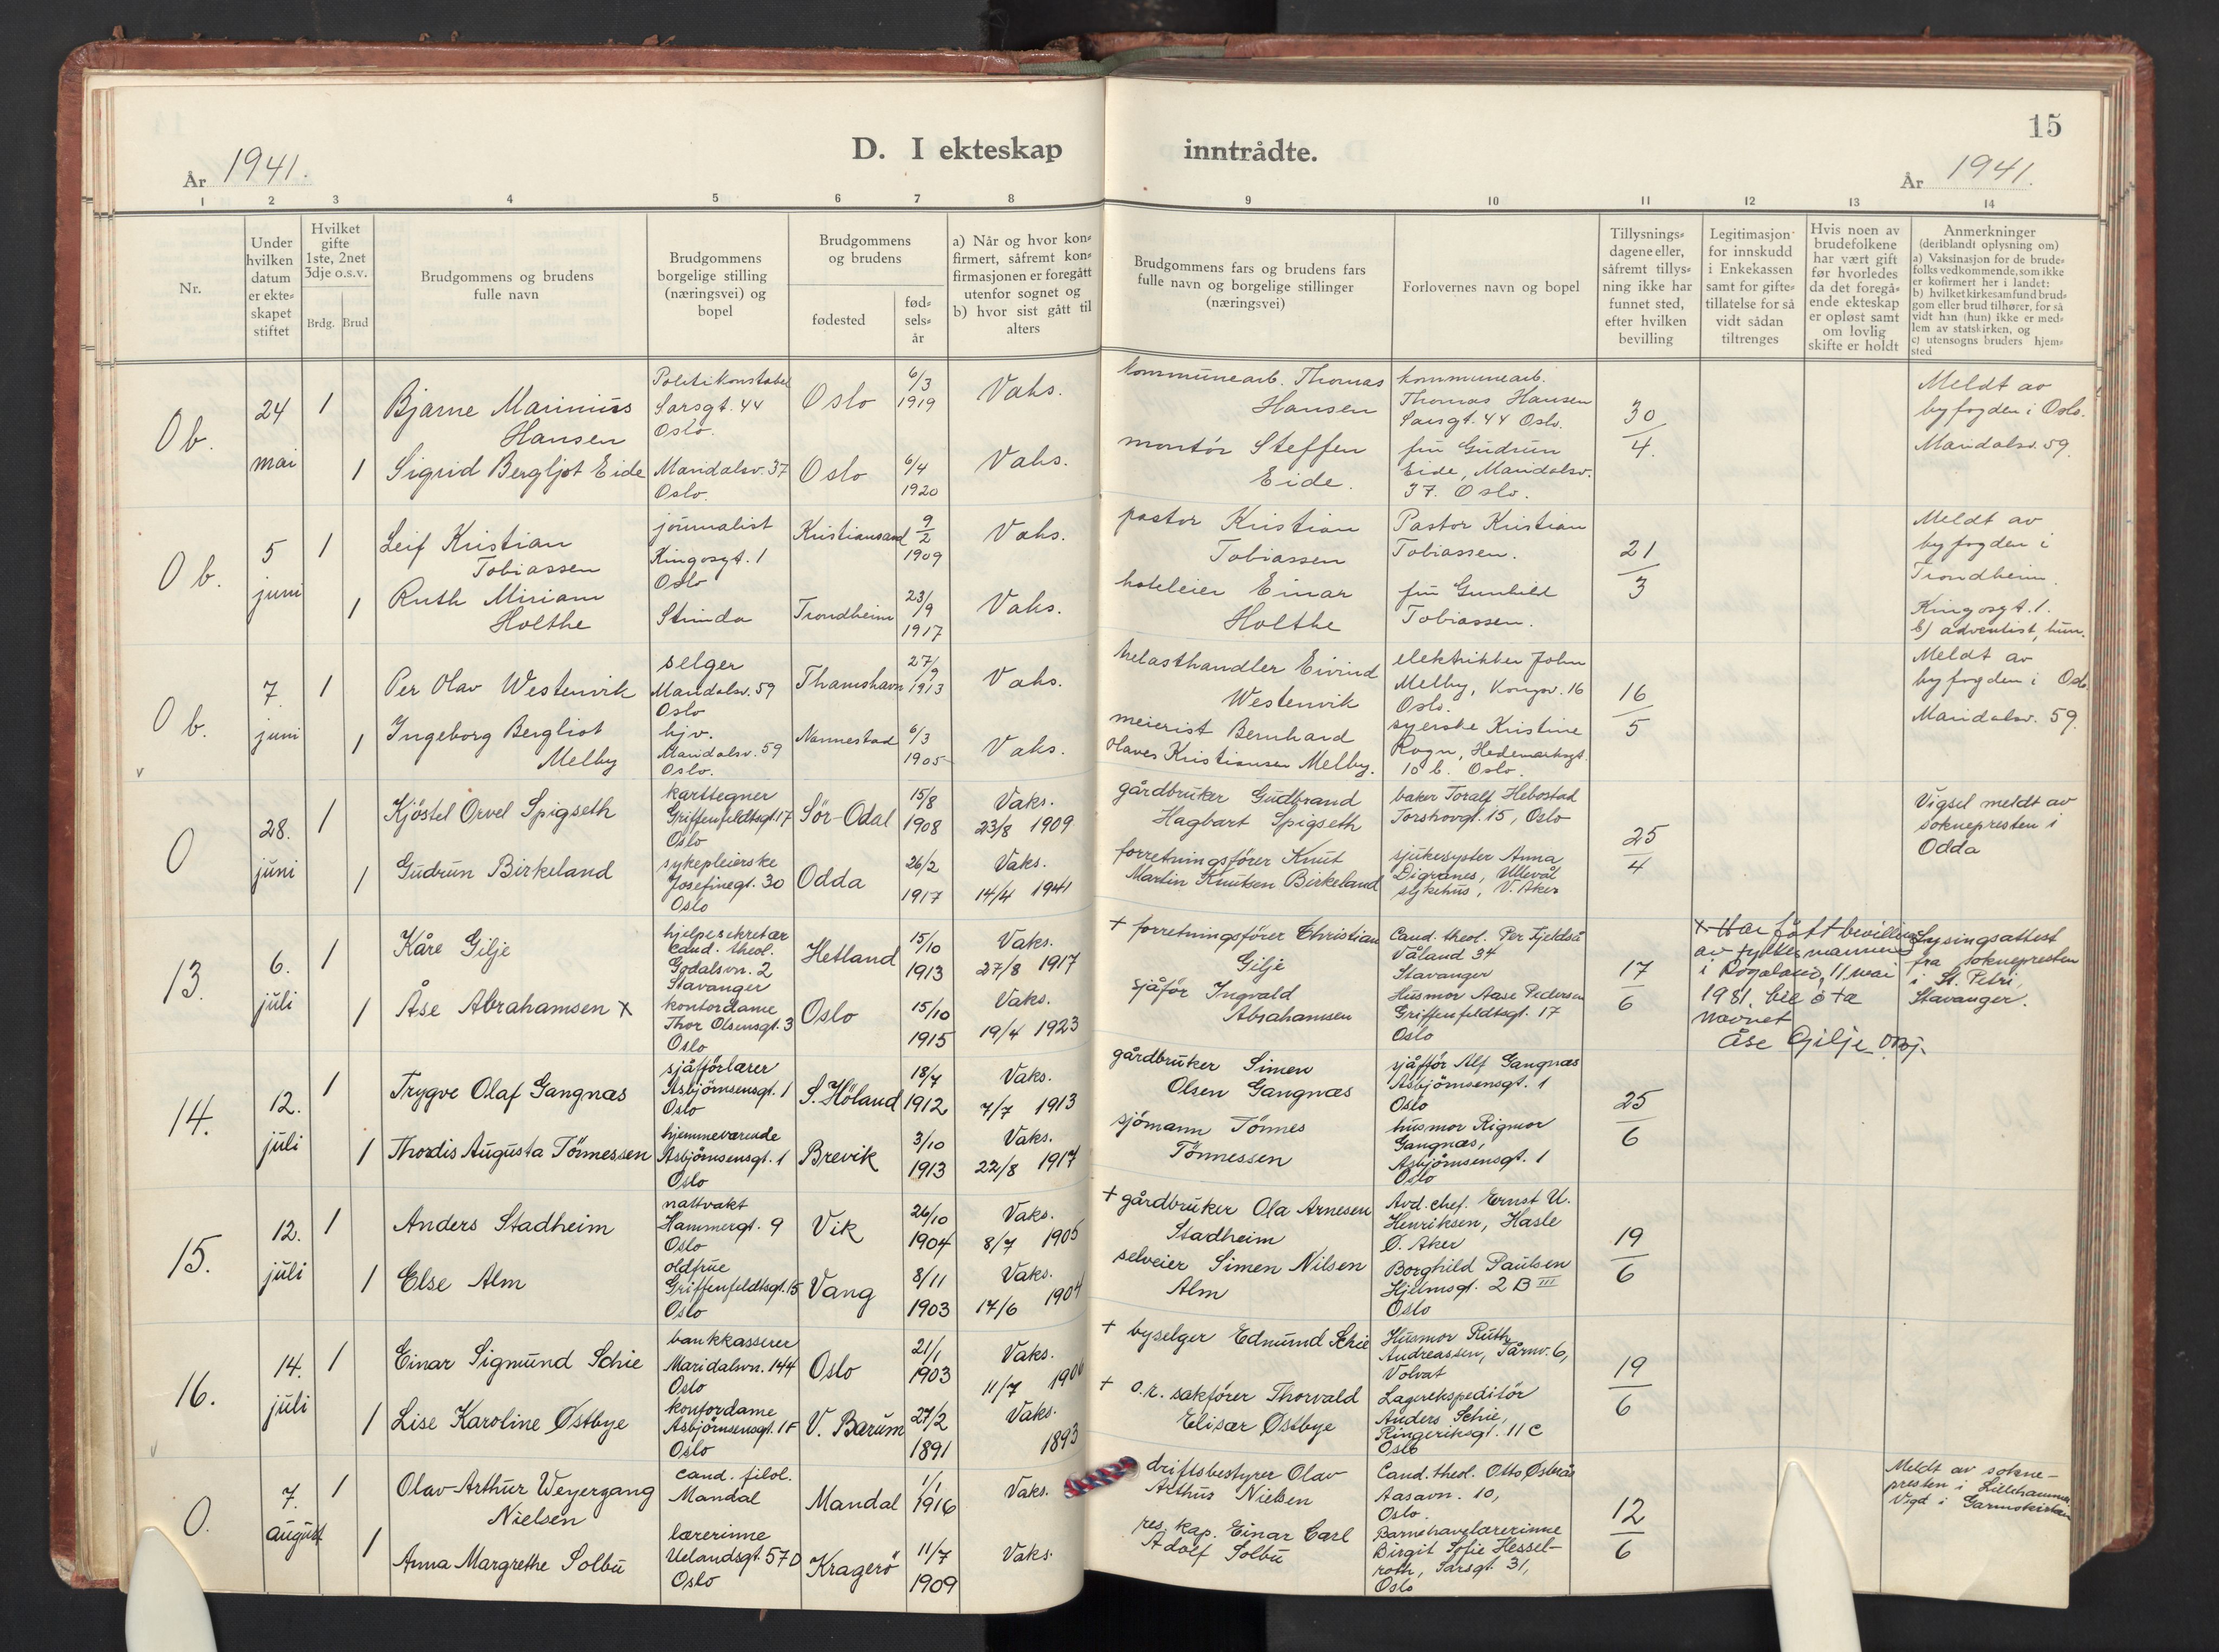 15
D. I ekteskap inntrådte.
År 1941.
År 1941.
1 2 3 4 5 6 7 8 9 10 11 12 13 14
Nr.
Under
hvilken
datum
er ekte-
skapet
stiftet
Hvilket
gifte
1ste, 2net
3dje o.s.v.
Brdg. Brud
Brudgommens og brudens
fulle navn
Brudgommens
borgelige stilling
(næringsvei) og
bopel
Brudgommens
og brudens
fødested
fød-
sels-
år
a) Når og hvor kon-
firmert, såfremt kon-
firmasjonen er foregått
utenfor sognet og
b) hvor sist gått til
alters
Brudgommens fars og brudens fars
fulle navn og borgelige stillinger
(næringsvei)
Forlovernes navn og bopel
Tillysnings-
dagene eller,
såfremt tillys-
ning ikke har
funnet sted,
efter hvilken
bevilling
Legitimasjon
for innskudd
i Enkekassen
samt for gifte-
tillatelse for så
vidt sådan
tiltrenges
Hvis noen av
brudefolkene
har vært gift
før hvorledes
da det foregå-
ende ekteskap
er opløst samt
om lovlig
skifte er holdt
Anmerkninger
(deriblandt oplysning om)
a) Vaksinasjon for de brude-
folks vedkommende, som ikke
er kofirmert her i landet:
b) hvilket kirkesamfund brud-
gom eller brud tilhører, for så
vidt han (hun) ikke er med-
lem av statskirken, og
c) utensogns bruders hjem-
sted
0 b.
24
mai
1
Bjarne Marinius
Hansen
Politikonstabel
Sarsgt. 44
Oslo.
Oslo
6/3
1919
Vaks.
kommunearb. Thomas
Hansen
kommunearb.
Thomas Hansen
Sarsgt. 44 Oslo.
30
4.
Meldt av
byfogden i Oslo.
Maridalsv. 59.
1
Sigrid Bergljot Eide
Maridalsv. 37
Oslo.
Oslo
6/4
1920
Vaks.
montör Steffen
Eide.
fru Gudrun
Eide, Maridalsv.
37. Oslo.
0 b.
5
juni
1
Leif Kristian
Tobiassen
journalist
Kingosgt. 1
Oslo
Kristiansand
9
2
1909
Vaks.
pastor Kristian
Tobiassen
Pastor Kristian
Tobiassen.
21
3
Meldt av
byfogden i
Trondheim.
Kingosgt. 1.
b) adventist, hun.
1
Ruth Miriam
Holthe
Strinda
Trondheim
23/
9
1917
Vaks.
hoteleier Einar
Holthe
fru Gunhild
Tobiassen.
0 b.
7.
juni
1
Per Olav Westenvik
selger
Maridalsv. 59
Oslo
Thamshavn
27/
9
1913
Vaks.
trelasthandler Eivind
Westenvik
elektrikker John
Melby, Kongsv. 16
Oslo.
16
5
Meldt av
byfogden i Oslo.
Maridalsv. 59.
1
Ingeborg Bergliot
Melby
hjv.
Maridalsv. 59
Oslo.
Nannestad
6/3
1905
Vaks.
meierist Bernhard
Olaves Kristiansen Melby.
syerske Kristine
Rogn, Hedemarksgt.
10 b. Oslo.
v
0
28.
juni
1
Kjöstel Orvel Spigseth
karttegner
Griffenfeldtsgt. 17
Oslo
Sör-Odal
15/8
1908
Vaks.
23/8 1909
gårdbruker Gudbrand
Hagbart Spigseth
baker Toralf Hebostad
Torshovgt. 15, Oslo
25
4
Vigsel meldt av
soknepresten i
Odda
1
Gudrun Birkeland
sykepleierske
Josefinegt. 30
Oslo
Odda
26/2
1917
Vaks.
14/4 1941
forretningsfører Knut
Martin Knutsen Birkeland
sjukesyster Anna
Digranes, Ullevål
sykehus, V. Aker
13.
6.
juli
1
Kåre Gilje
hjelpesekretær
cand. theol.
Godalsvn. 2
Stavanger
Hetland
15/10
1913
Vaks.
27/8 1917
+ forretningsfører Christian
Gilje
Cand. theol. Per Fjeldså
Våland 34
Stavanger
17
6
x Har fått bevilling
av fylkesmannen
i Rogaland, 11 mai
1981. til å ta
navnet
Åse Gilje
Lysingsattest
fra soknepresten
i St. Petri,
Stavanger.
1
Åse Abrahamsen x
kontordame
Thor Olsensgt. 3
Oslo
Oslo
15/10
1915
Vaks.
19/4 1923
sjåför Ingvald
Abrahamsen
Husmor Aase Pedersen
Griffenfeldtsgt. 17
Oslo
14.
12.
juli
1
Trygve Olaf Gangnæs
sjåfförlærer
Asbjörnsensgt. 1
Oslo
S. Höland
18/7
1912
Vaks.
7/7 1913
gårdbruker Simen
Olsen Gangnæs
sjåffør Alf Gangnæs
Asbjörnsensgt. 1
Oslo
25
6
1
Thordis Augusta Tönnessen
hjemmeværende
Asbjörnsensgt. 1
Oslo
Brevik
3/10
1913
Vaks.
22/8 1917
sjömann Tönnes
Tönnessen
husmor Rigmor
Gangnæs,
Asbjörnsensgt. 1
Oslo
15.
12.
juli
1
Anders Stadheim
nattvakt
Hammergt. 9
Oslo
Vik
26/10
1904
Vaks.
8/7 1905
+ gårdbruker Ola Arnesen
Stadheim
Avd. chef. Ernst U.
Henriksen, Hasle
Ø. Aker
19
6
1
Else Alm
oldfrue
Griffenfeldtsgt. 15
Oslo
Vang
8/11
1903
Vaks.
17/6 1904
selveier Simen Nilsen
Alm
Borghild Paulsen
Hjelmsgt. 2 B III
Oslo
16.
14.
juli
1
Einar Sigmund Schie
bankkasserer
Maridalsvn. 144
Oslo
Oslo
21/1
1903
Vaks.
11/7 1906
+ byselger Edmund Schie
Husmor Ruth
Andreassen, Tårnv. 6,
Volvat
19
6
1
Lise Karoline Østbye
kontordame
Asbjörnsensgt. 1F
Oslo
V. Bærum
27/2
1891
Vaks.
1893
+ o.r. sakfører Thorvald
Elisær Østbye
Lagerekspeditör
Anders Schie,
Ringeriksgt. 11 C
Oslo
v
0.
7.
august
1
Olav-Arthur Weyergang
Nielsen
cand. filol.
Mandal
Mandal
1/1
1916
Vaks.
driftsbestyrer Olav
Arthur Nielsen
Cand. theol. Otto Østerås
Aasavn. 10,
Oslo.
12
6
Meldt av sokne-
presten i Lillehammer.
Vigd i Garmokirken
1
Anna Margrethe Solbu
lærerinne
Uelandsgt. 57 D
Oslo
Kragerö
11/7
1909
Vaks.
res. kap. Einar Carl
Adolf Solbu
Barnehavelærerinne
Birgit Sofie Hessel-
roth, Sarsgt. 31,
Oslo